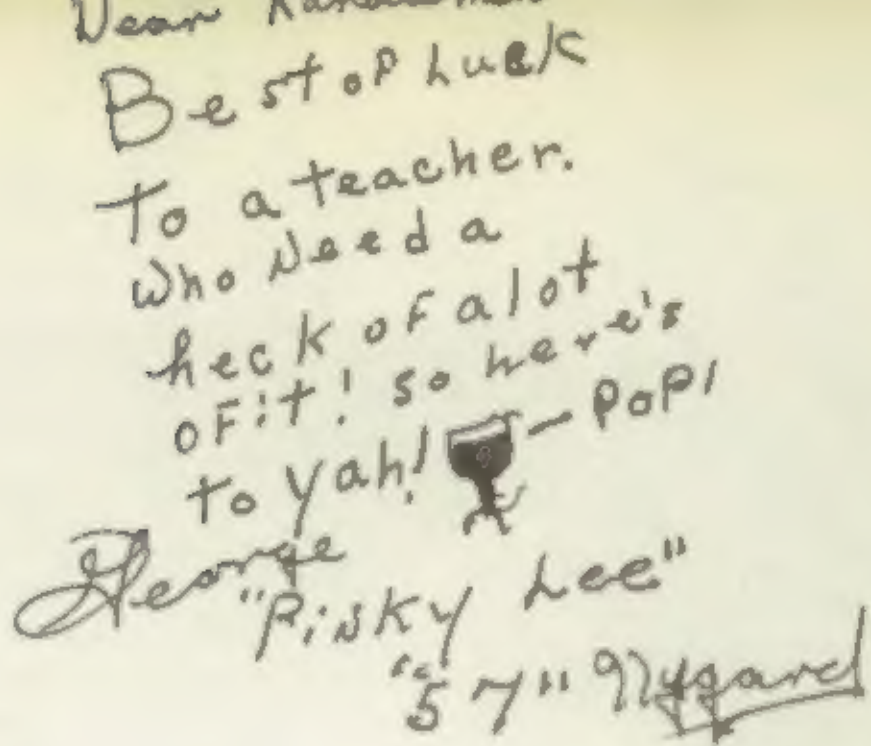 Dear
Best of Luck
To a teacher.
Who Need a
heck of a lot
of it! so here's
to yah! — POP!
George
"Pinky Lee"
"57" Nygard